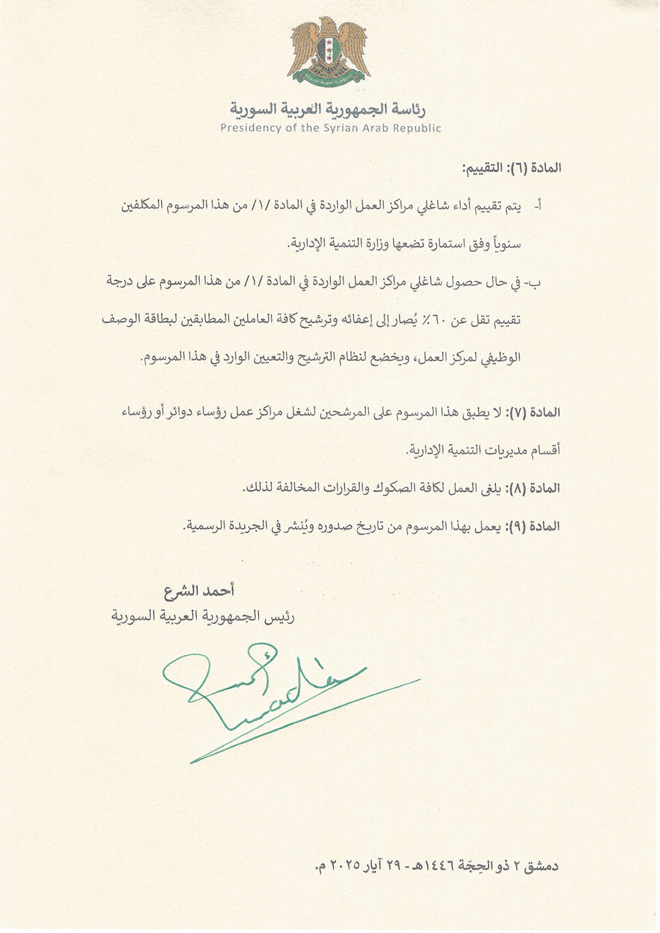 رئاسة الجمهورية العربية السورية
Presidency of the Syrian Arab Republic
المادة (٦): التقييم:
أ- يتم تقييم أداء شاغلي مراكز العمل الواردة في المادة /١/ من هذا المرسوم المكلفين
سنوياً وفق استمارة تضعها وزارة التنمية الإدارية.
ب- في حال حصول شاغلي مراكز العمل الواردة في المادة /١/ من هذا المرسوم على درجة
تقييم تقل عن ٦٠٪ يُصار إلى إعفائه وترشيح كافة العاملين المطابقين لبطاقة الوصف
الوظيفي لمركز العمل، ويخضع لنظام الترشيح والتعيين الوارد في هذا المرسوم.
المادة (٧): لا يطبق هذا المرسوم على المرشحين لشغل مراكز عمل رؤساء دوائر أو رؤساء
أقسام مديريات التنمية الإدارية.
المادة (٨): يلغى العمل لكافة الصكوك والقرارات المخالفة لذلك.
المادة (٩): يعمل بهذا المرسوم من تاريخ صدوره ويُنشر في الجريدة الرسمية.
أحمد الشرع
رئيس الجمهورية العربية السورية
دمشق ٢ ذو الحِجَة ١٤٤٦هـ - ٢٩ أيار ٢٠٢٥ م.